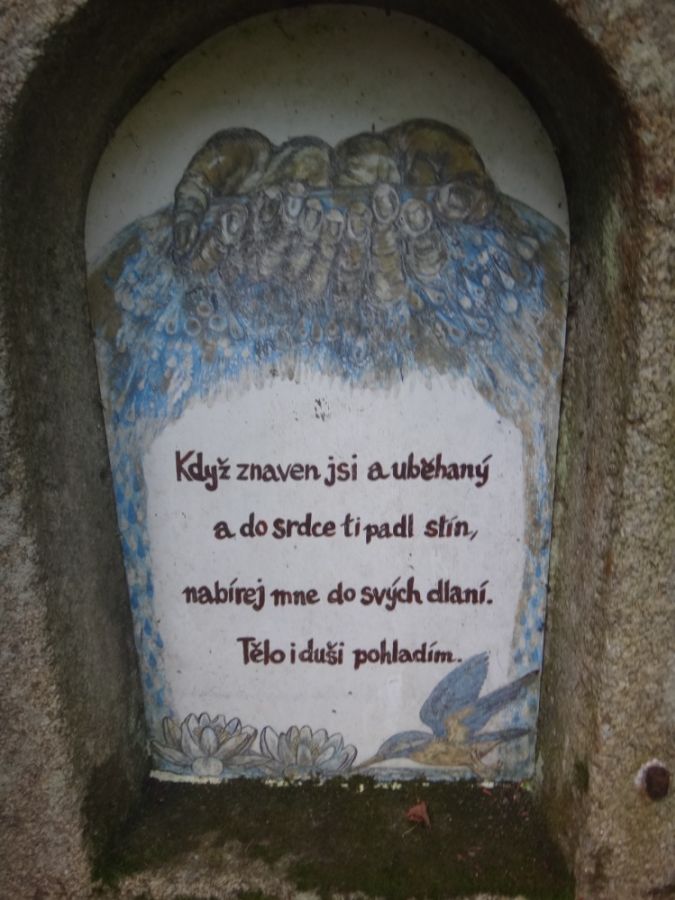 Když znaven jsi a uběhaný
a do srdce ti padl stín,
nabírej mne do svých dlaní.
Tělo i duši pohladím.